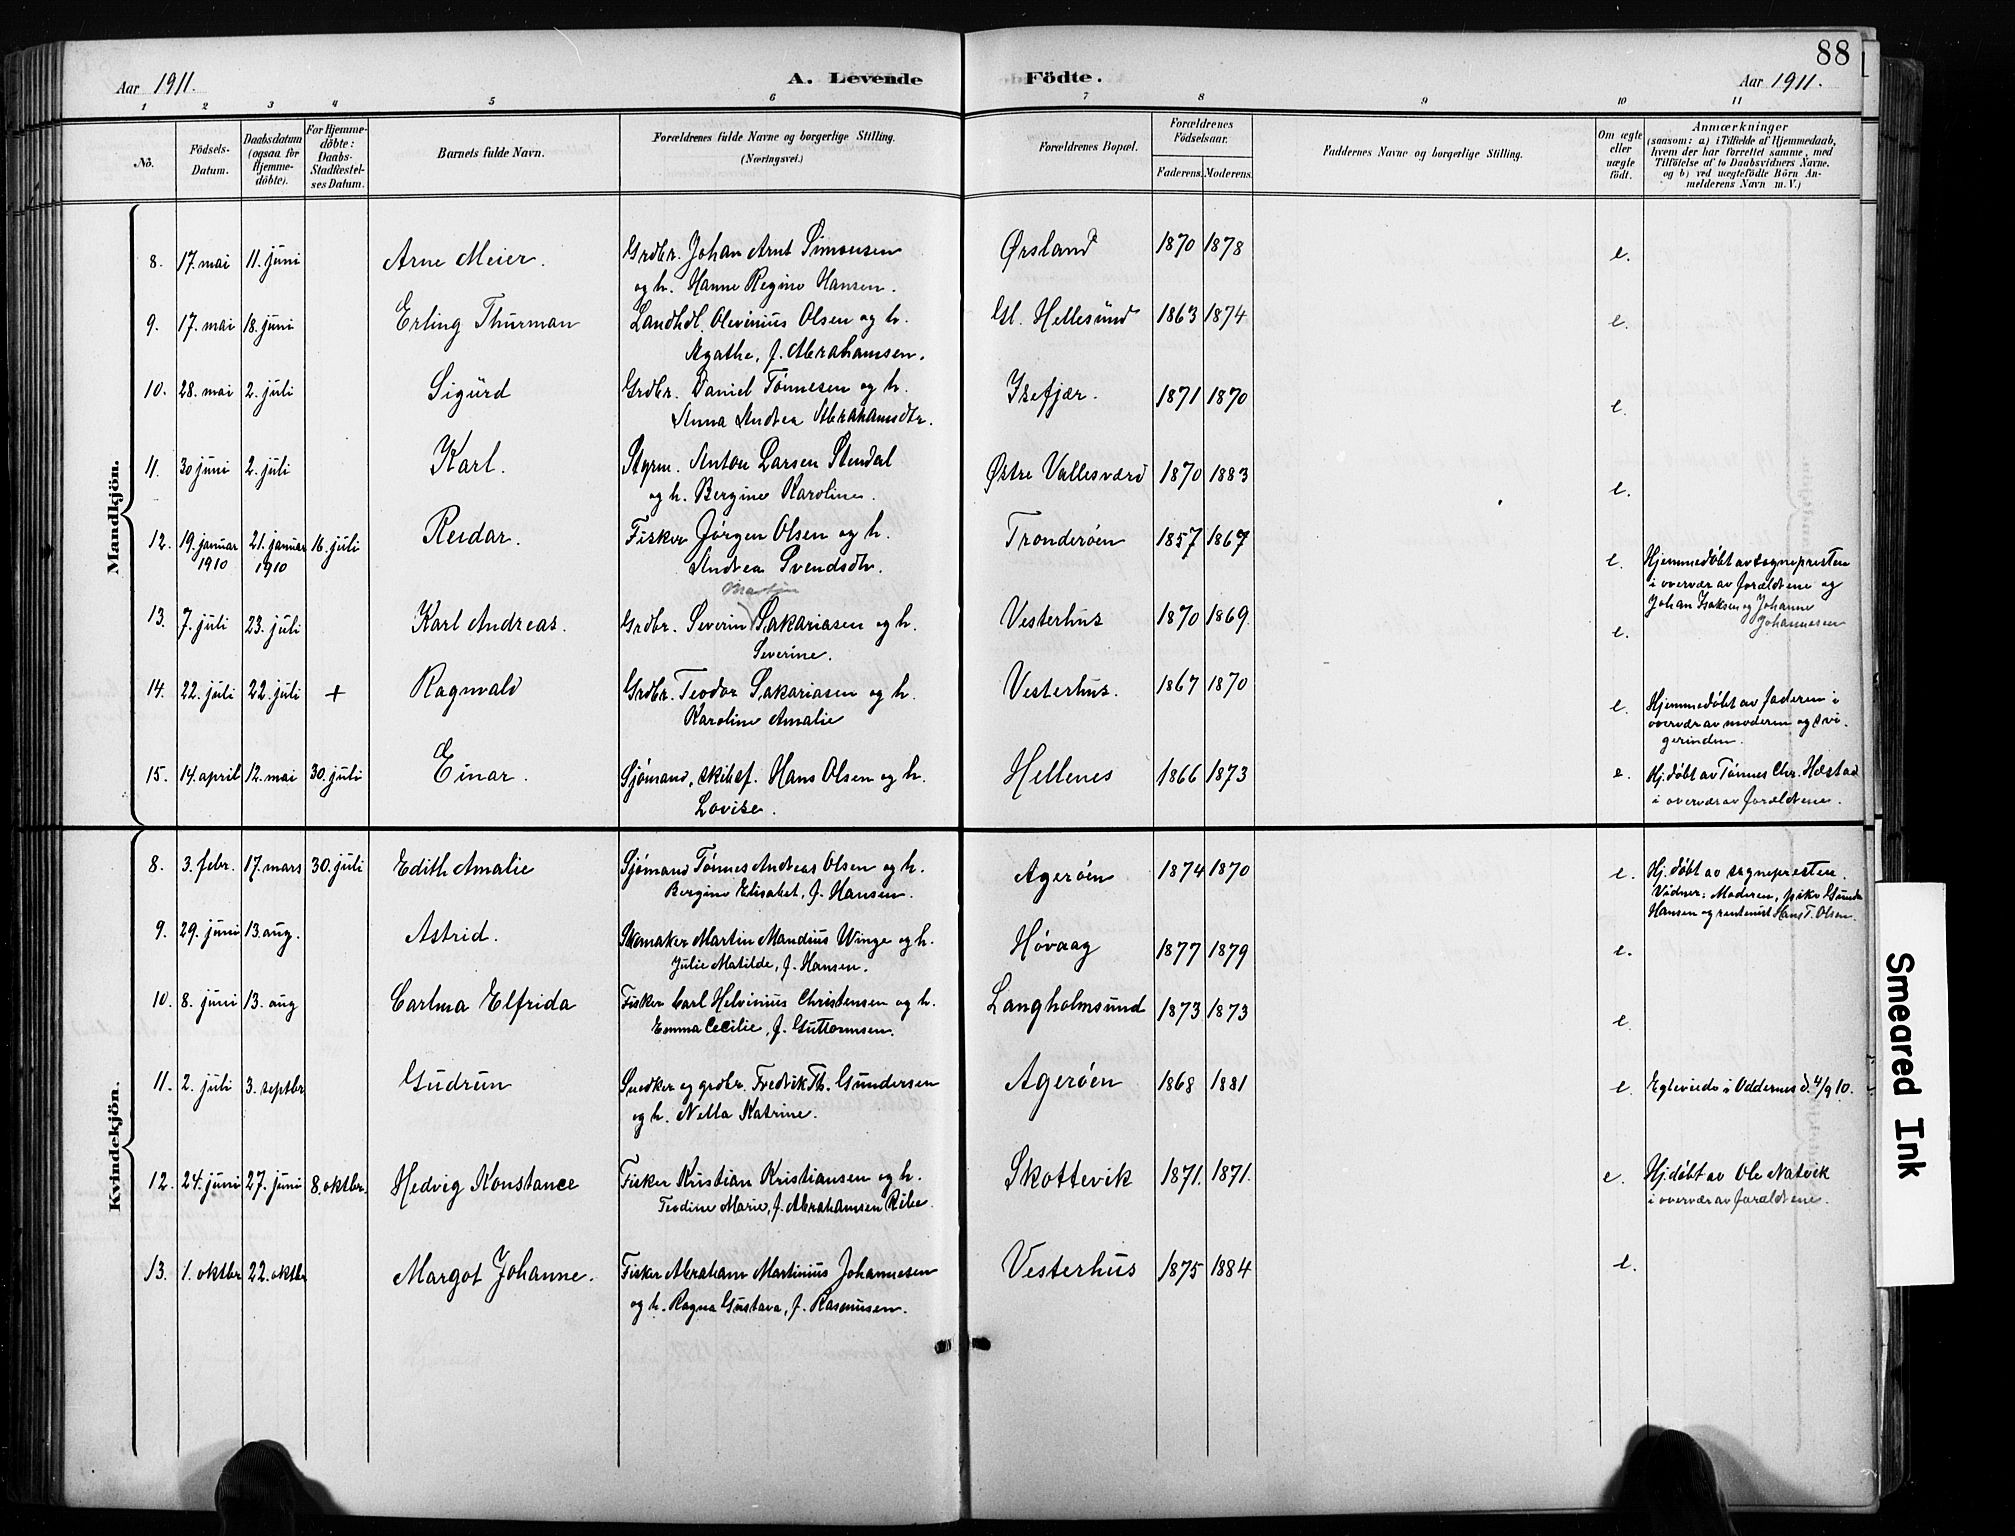 88
Aar 1911.
A. Levende Födte.
Aar 1911.
1 2 3 4 5 6 7 8 9 10 11
No.
Födsels-Datum.
Daabsdatum (ogsaa for Hjemme-döbte).
For Hjemme-döbte: Daabs-Stadfæstel-ses Datum.
Barnets fulde Navn.
Forældrenes fulde Navne og borgerlige Stilling.
(Næringsvei.)
Forældrenes Bopæl.
Forældrenes Födselsaar.
Faderens. Moderens.
Faddernes Navne og borgerlige Stilling.
Om ægte eller uægte födt.
Anmærkninger
(saasom: a) i Tilfælde af Hjemmedaab,
hvem der har forrettet samme, med
Tilföielse af to Daabsvidners Navne,
og b) ved uægtefödte Börn An-
melderens Navn m. V.)
Mandkjön.
8. 17. mai 11. juni Arne Meier. Grdbr. Johan Arnt Simonsen Ørsland 1870 1878 e.
og h. Hanne Regine Hansen.
9. 17. mai 18. juni Erling Thurman Landhdl. Olevinius Olsen og h. Gl. Hellesund 1863 1874 e.
Agathe, f. Abrahamsen.
10. 28. mai 2. juli Sigurd Grdbr. Daniel Tønnesen og h. Isefjær. 1871 1870 e.
Anna Andrea Abrahamsdtr.
11. 30 juni 2. juli Karl. Styrm. Anton Larsen Stendal Østre Vallesværd 1870 1883 e.
og h. Bergine Karoline.
12. 19. januar 1910 21. januar 1910 16. juli Reidar. Fisker Jørgen Olsen og h. Trønderøen 1857 1867 e.
Andrea Svendsdtr.
Hjemmedøbt av sognepresten
i overvær av forældrene og
Johan Isaksen og Johanne
Johannesen
13. 7. juli 23. juli Karl Andreas. Grdbr. Severin Martin Sakariasen og h. Vesterhus 1870 1869. e.
Severine.
14. 22. juli 22. juli + Ragnvald Grdbr. Teodor Sakariasen og h. Vesterhus. 1867 1870 e.
Karoline Amalie
Hjemmedøbt av faderen i
overvær av moderen og svi-
gerinden.
15. 14. april 12. mai 30. juli Einar. Sjømand, skibsf. Hans Olsen og h. Hellenes 1866 1873 e.
Lovise.
Hj. døbt av Tønnes Chr. Hæstad
i overvær av forældrene.
Kvindekjön.
8. 3. febr. 17. mars 30. juli Edith Amalie Sjømand Tønnes Andreas Olsen og h. Agerøen 1874 1870 e.
Bergine Elisabet, f. Hansen.
Hj. døbt av sognepresten.
Vidner: Moderen, pike Gunda
Hansen og rentenist Hans T. Olsen.
9. 29. juni 13. aug. Astrid. Skomaker Martin Mandius Winge og h. Høvaag 1877 1879 e.
Julie Matilde, f. Hansen.
10. 8. juni 13. aug Carlma Elfrida Fisker Carl Helvinius Christensen og h. Langholmsund 1873 1873 e.
Emma Cecilie, f. Guttormsen.
11. 2. juli 3. septbr Gudrun Snedker og grdbr. Fredrik Th. Gundersen Agerøen 1868 1881 e.
og h. Nella Katrine.
Egteviede i Oddernes d. 4/9 10.
12. 24. juni 27. juni 8. oktbr. Hedvig Konstance Fisker Kristian Kristiansen og h. Skottevik 1871. 1871. e.
Teodine Marie, f. Abrahamsen Ribe.
Hj. døbt av Ole Natvik
i overvær av forældrene.
13. 1. oktbr 22. oktbr Margot Johanne. Fisker Abraham Martinius Johannesen Vesterhus 1875 1884 e.
og h. Ragna Gustava, f. Rasmusen.
Smeared Ink